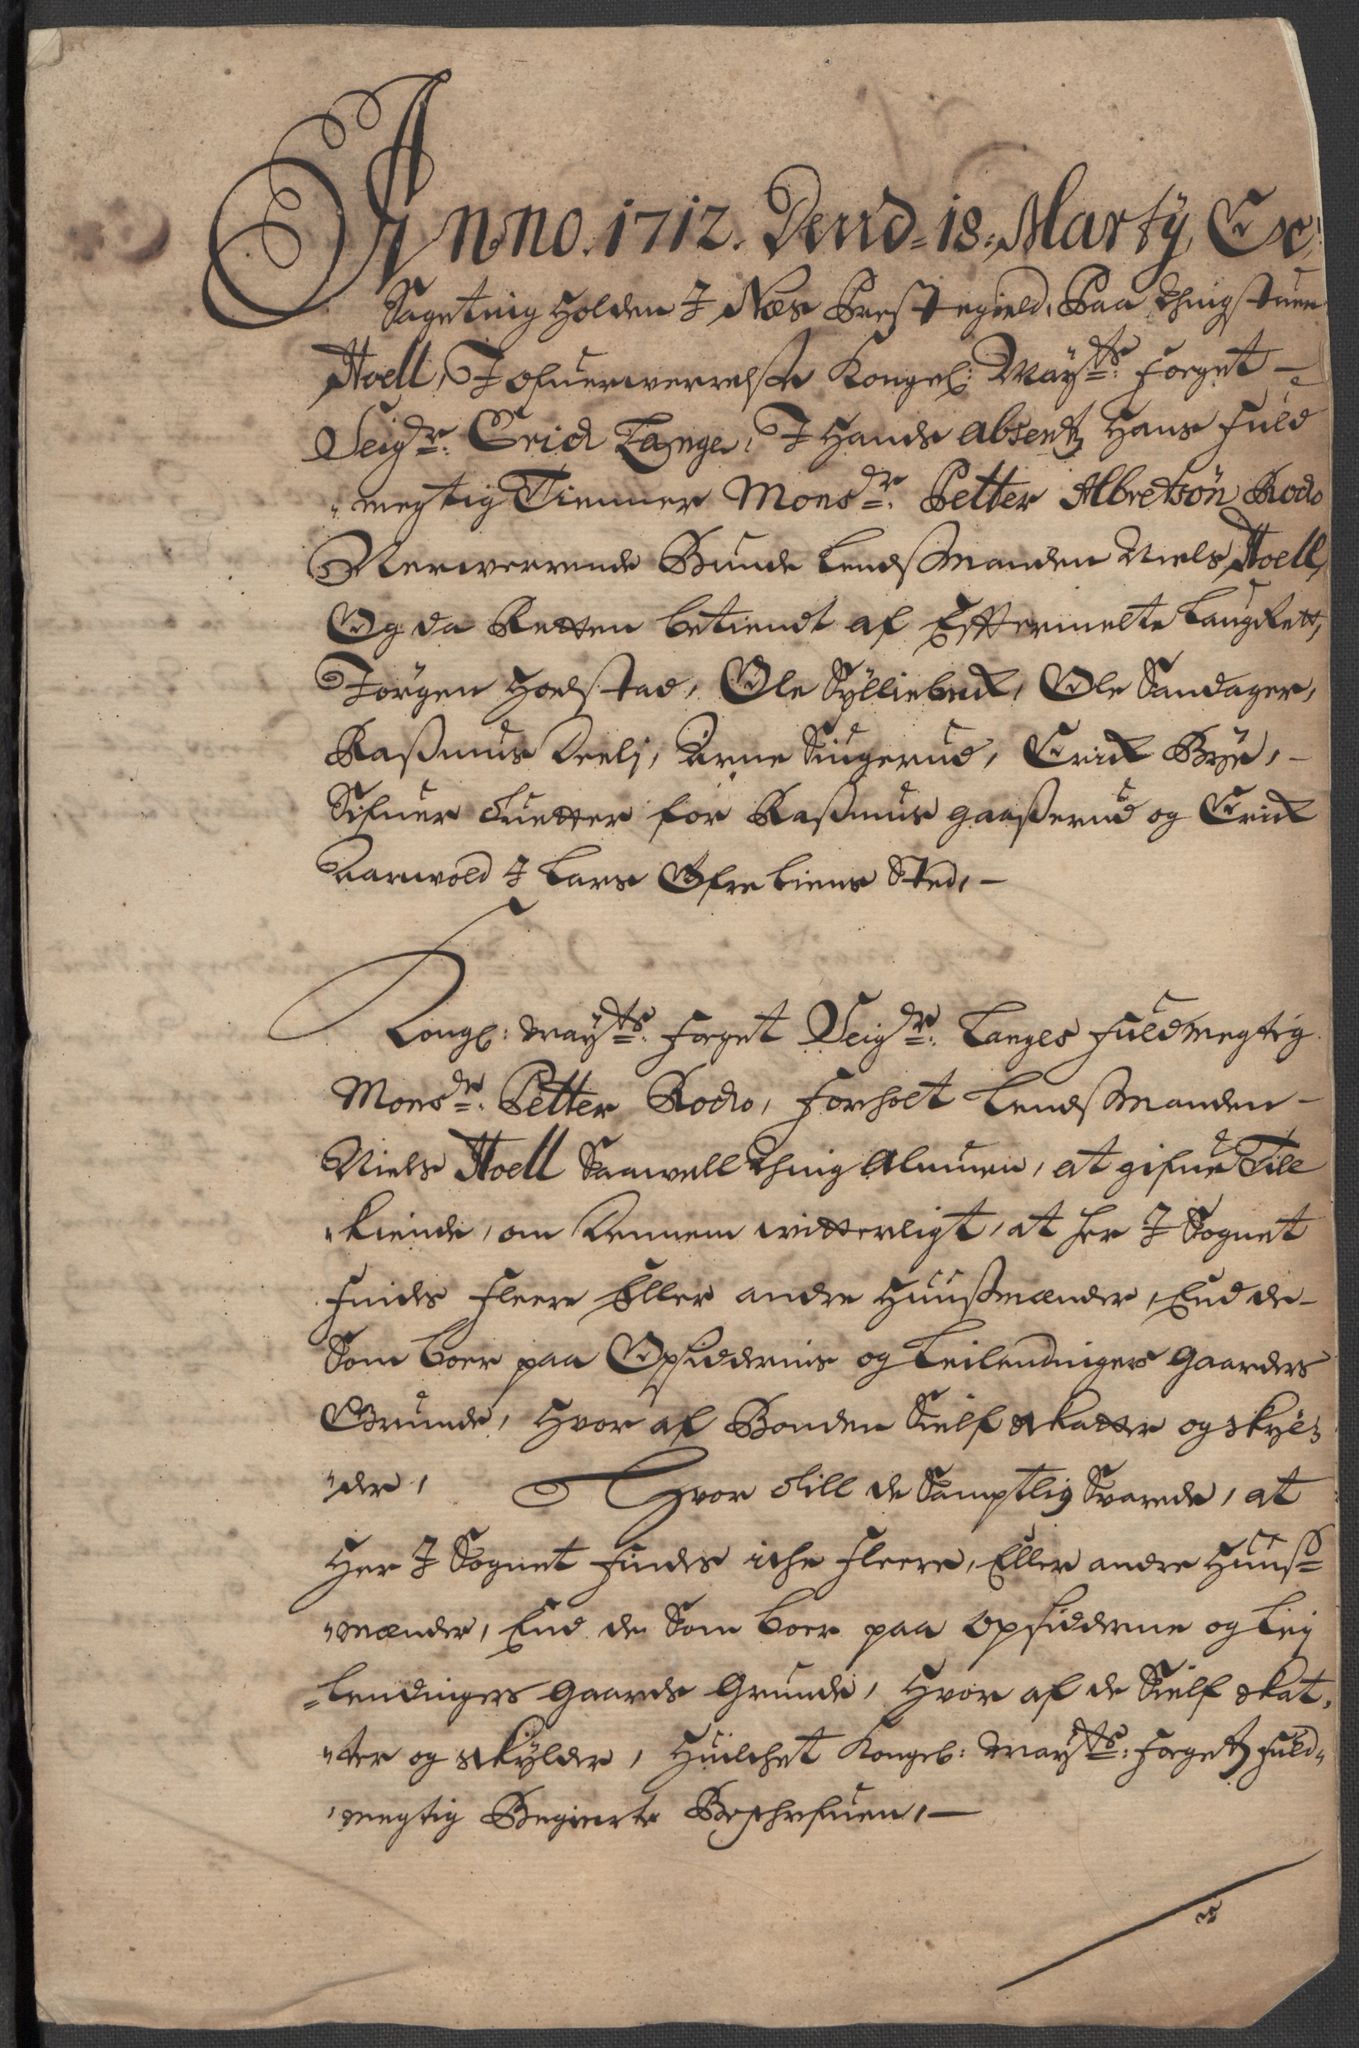 Anno. 1712. Dend = 18: Marty, Er
Sageting Holden J Næs Prestegield, Paa Thingstuen
Hoell, J ofuerwerrelse Kongel: Mayts: Foget –
Seigr: Erick Lange, J Hands absentz Hans Fuld
„megtig Tienner Monsr: Petter Albretsøn Rodo
Nerwerrende Bunde LendsManden Niels Hoell,
Og da Retten betiendt af Efftermelte LaugRett,
Jørgen Hoelstad, Ole Sylliebech, Ole Sandager,
Rasmus Deelj, Arne Singerud, Erick Bye, –
Sifuer Tuetter for Rasmus Gaasserud og Erick
Narwold J Lars Øfre Liens Sted, –
Kongl: Mayts: Foget Seigr: Langes Fuldmegtig
Monsr: Petter Rodo, Forholt LendsManden –
Niels Hoell Saawell Thing Almuen, at gifue Till
„kiende, om Dennem witterligt, at her J Sognet
Findes Fleere Eller andre Huusmænder, End de –
Som boer paa Opsiddernis og Leilendingers Gaarders
Grunde, Hvor af Bonden Sielf skatter og skyl=
„der, Hvor Till de Samptlig Svarede, at
Her J Sognet Findes iche Fleere, Eller andre Huus=
„mænder, End de Som boer paa Opsidderne og Lej
=lendingers Gaards Grunde, Hvor af de Sielf skat,
„ter og skylder, Huilchet Kongel: Mayts: Fogetz Fuld„
„megtig Begierte Beschrefuen, –